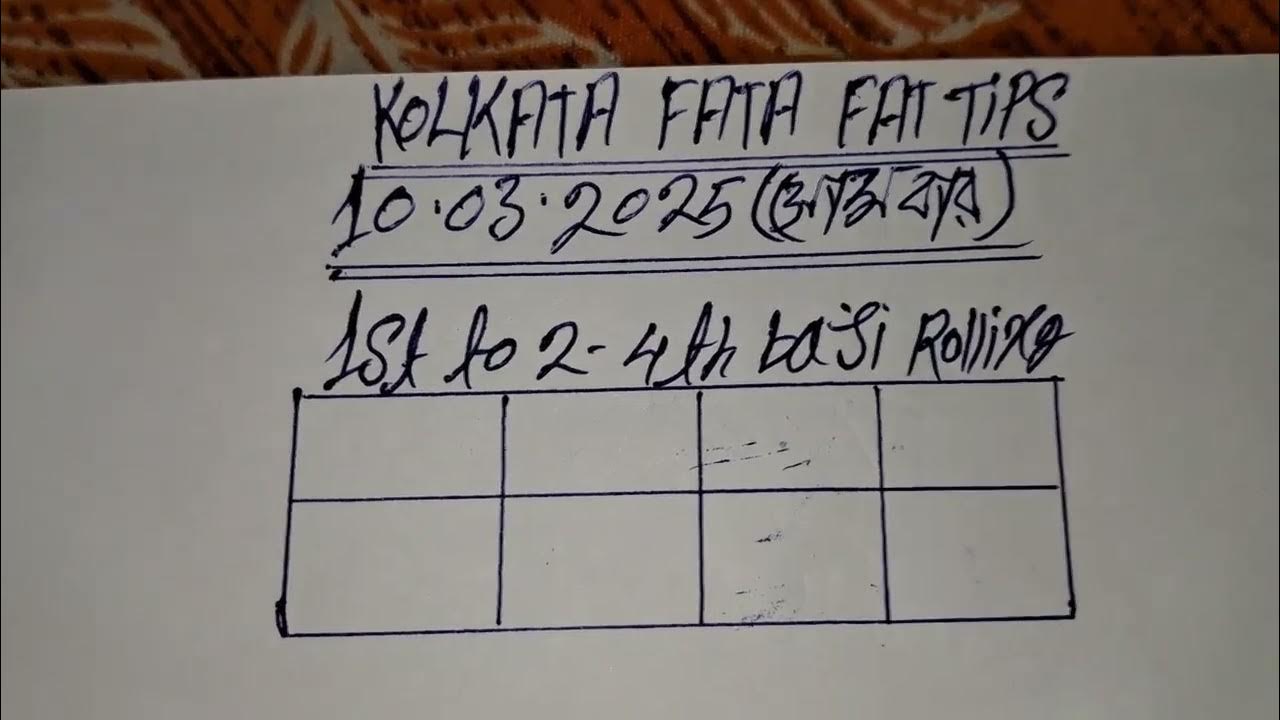 KOLKATA FATA FAT TIPS
10.03.2025 (সোমবার)
1St to 2-4th baji Rolling